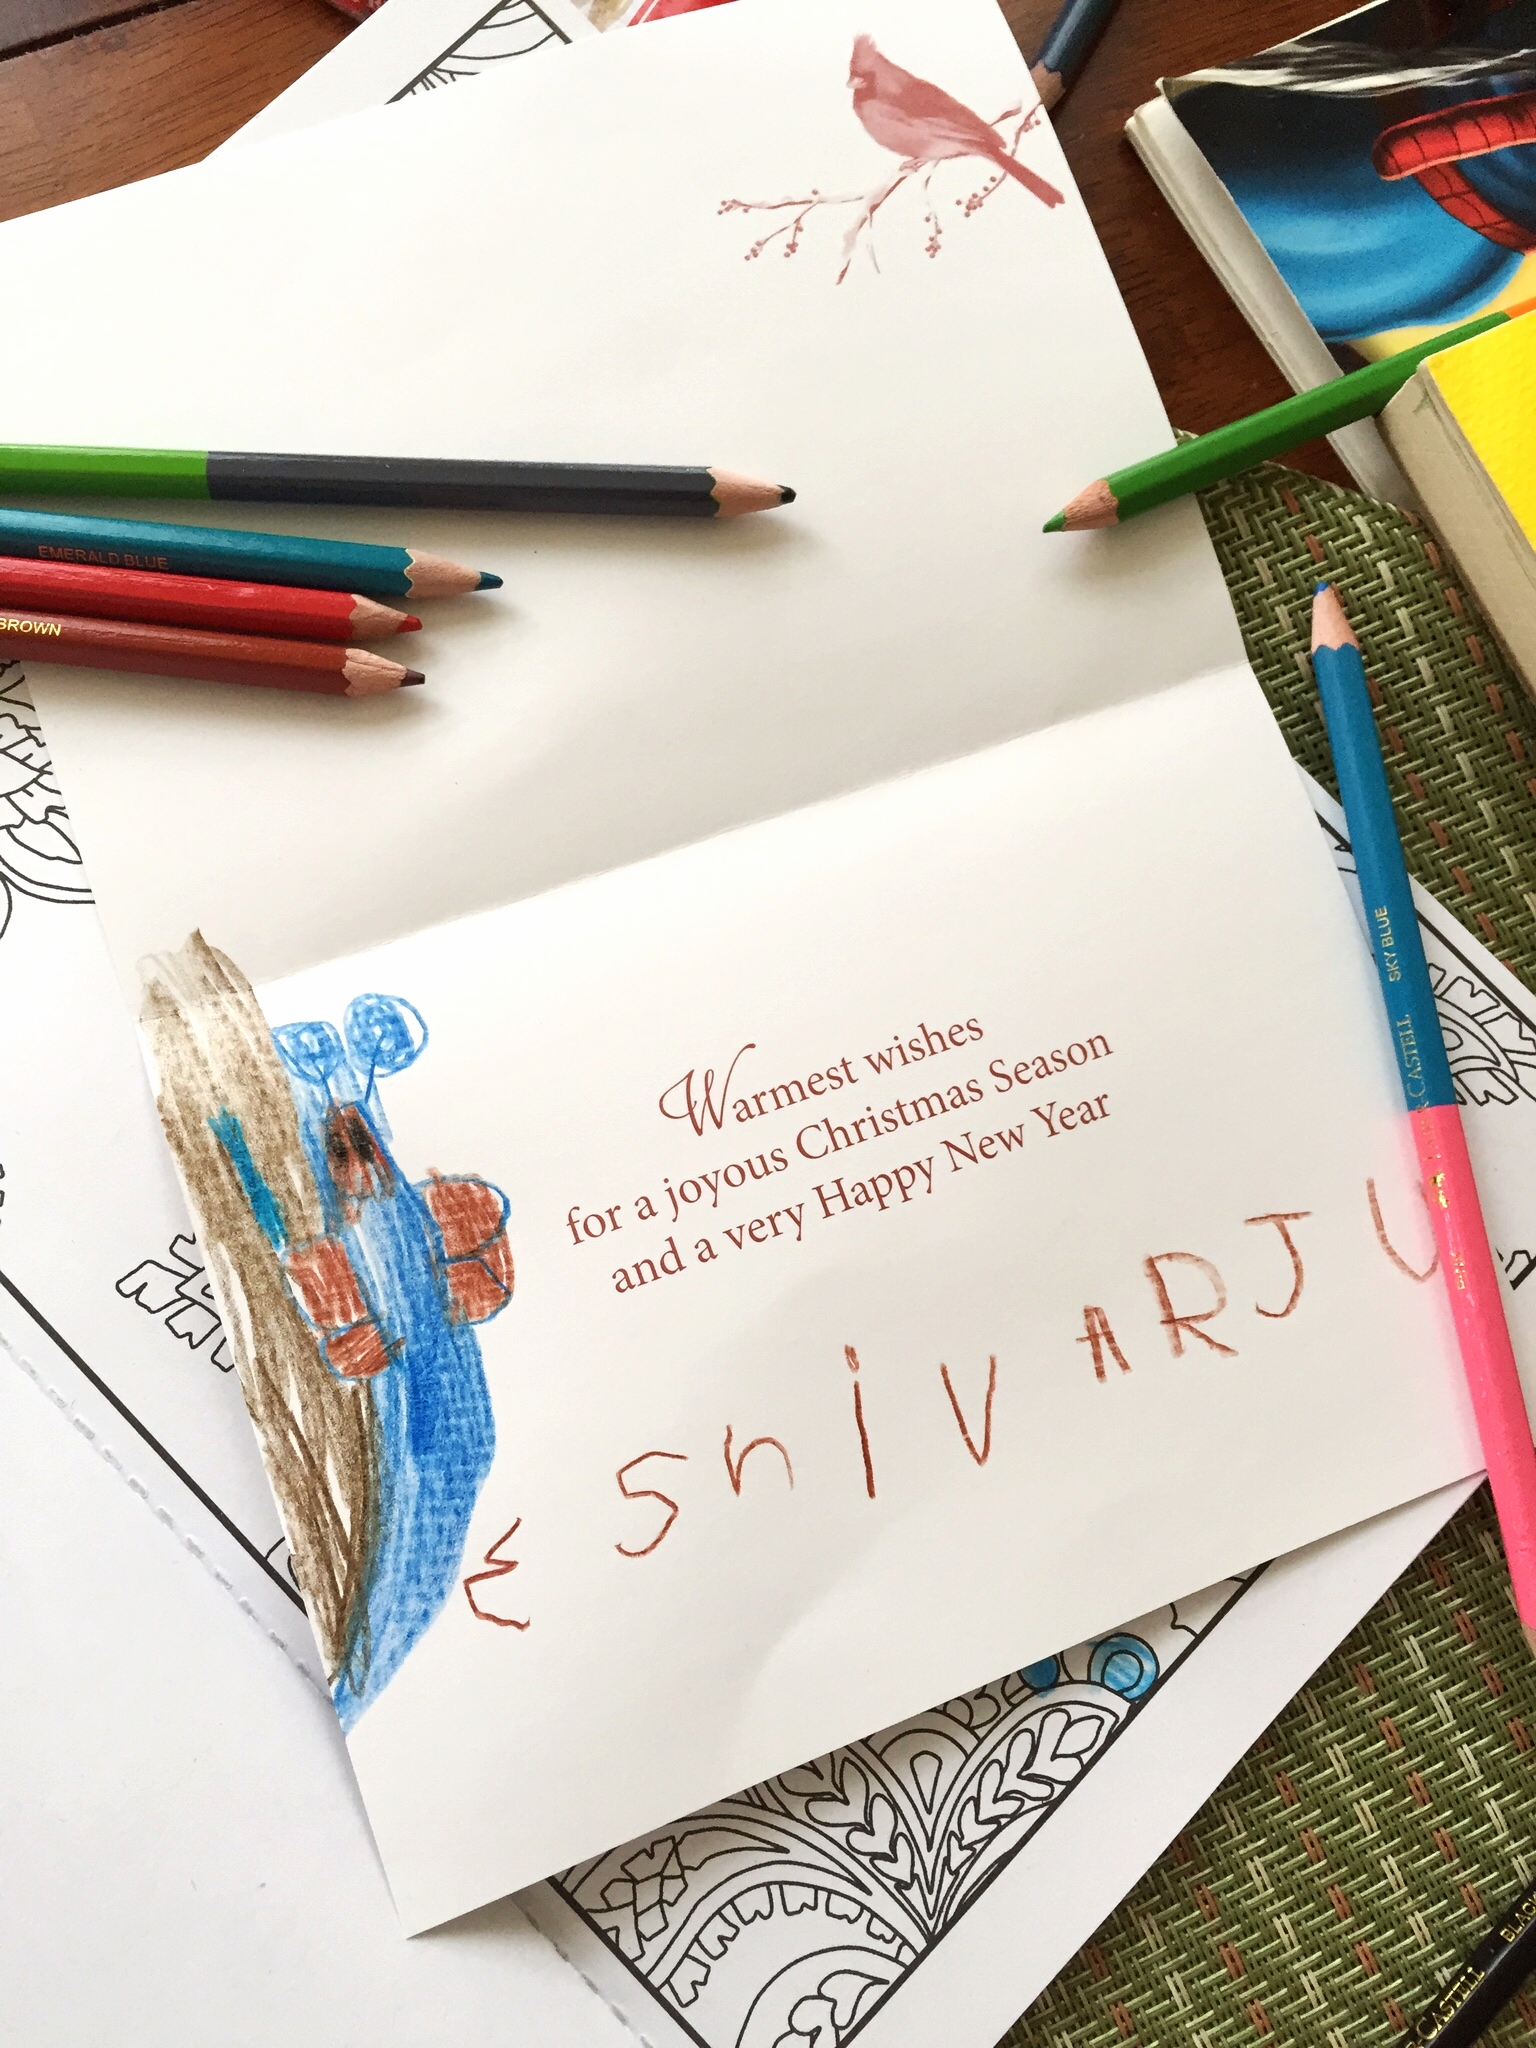 EMERALD BLUE
BROWN
SKY BLUE
Warmest wishes
for a joyous Christmas Season
and a very Happy New Year
ShiVARJU
PINK
CASTELL